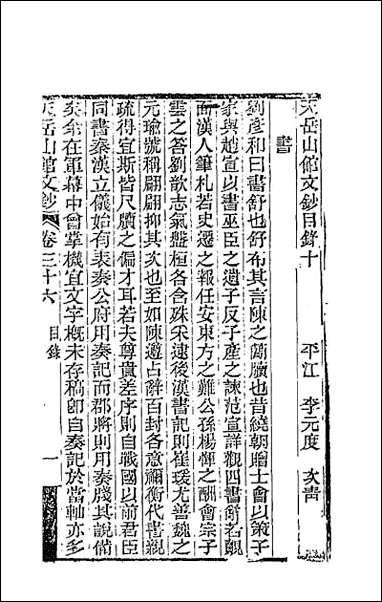 天岳山館文鈔目錄十
平江 李元度 次青
書
劉彥和曰書舒也舒布其言陳之簡牘也昔繞朝贈士會以策子
家與趙宣以書巫臣之遺子反子產之諫范宣詳觀四書辭若覿
面漢人筆札若史遷之報任安東方之難公孫楊惲之酬會宗子
雲之答劉歆志氣盤桓各含殊采逮後漢書記則崔瑗尤善魏之
元瑜號稱翩翩抑其次也至如陳遵占辭百封各意禰衡代書親
疏得宜斯皆尺牘之偏才耳若夫尊貴差序則自戰國以前君臣
同書秦漢立儀始有表奏公府用奏記而郡將則用奏牋其說備
矣余在軍幕中曾掌機宜文字概未存稿卽自奏記於當軸亦多
天岳山館文鈔
卷三十六 目錄 一